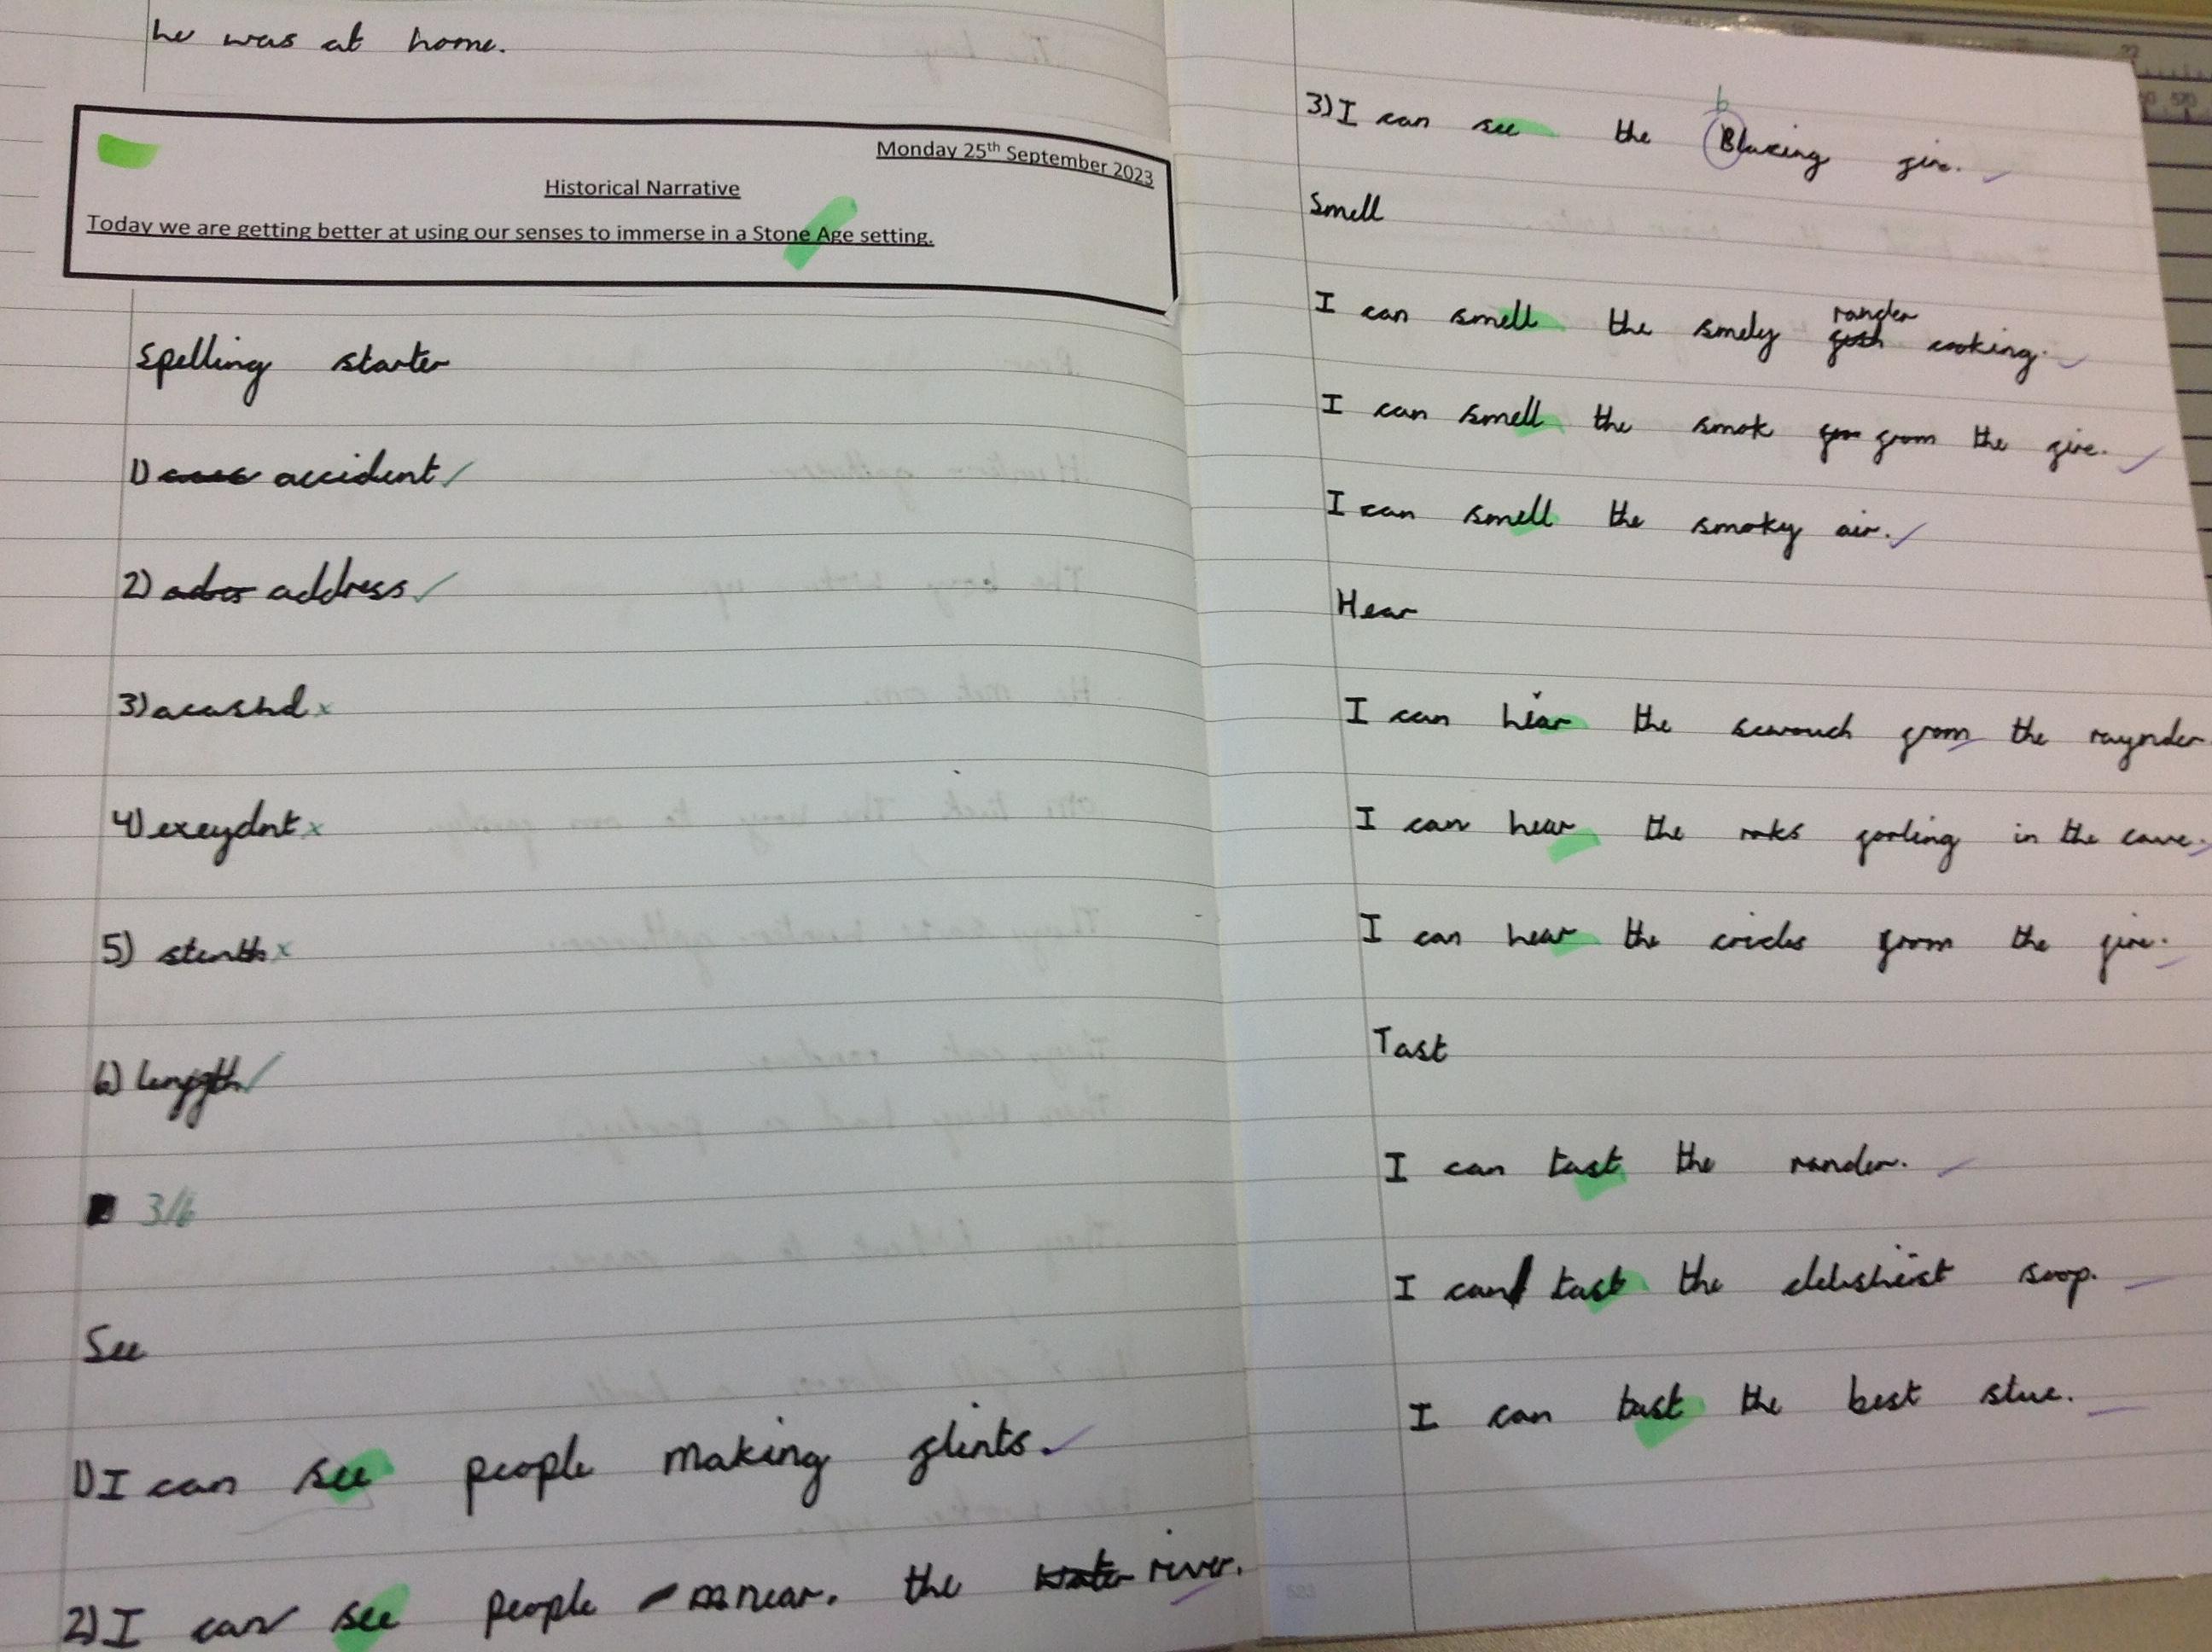 he was at home.
Monday 25th September 2023
Historical Narrative
Today we are getting better at using our senses to immerse in a Stone Age setting.
Spelling starter
1) accident ✓
2) address ✓
3) acashd x
4) exeydnt x
5) stenth x
6) length ✓
3/6
See
1) I can see people making flints.
2) I can see people near. the water river.
3) I can see the Blazing fire.
b
Smell
rander
I can smell the smely cooking.
I can smell the smok from the fire.
I can smell the smoky air.
Hear
I can hear the scrouch from the raynder
I can hear the roks forling in the cave.
I can hear the cricls from the fire.
Tast
I can tast the rander.
I can tast the soop.
I can tast the best stue.